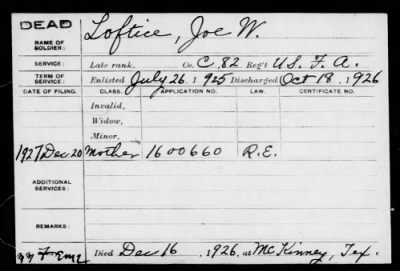 DEAD
NAME OF SOLDIER:
Loftice, Joe W.
SERVICE:
Late rank, Co. C. 82 Reg't U.S. F. A.
TERM OF SERVICE:
Enlisted July 26, 1925 Discharged Oct 18, 1926
DATE OF FILING. CLASS. APPLICATION NO. LAW. CERTIFICATE NO.
Invalid,
Widow,
Minor,
1927 Dec 20 Mother 1600660 R.E.
ADDITIONAL SERVICES:
REMARKS:
Died Dec 16, 1926, at McKinney, Tex.